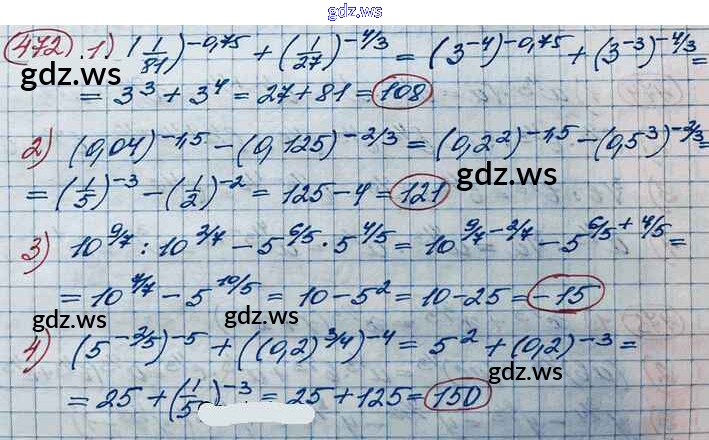 gdz.ws
472. 1) (1/81)^-0,75 + (1/27)^-4/3 = (3^-4)^-0,75 + (3^-3)^-4/3 =
gdz.ws gdz.ws
= 3^3 + 3^4 = 27 + 81 = 108
2) (0,04)^-1,5 - (0,125)^-2/3 = (0,2^2)^-1,5 - (0,5^3)^-2/3 =
gdz.ws
= (1/5)^-3 - (1/2)^-2 = 125 - 4 = 121
3) 10^9/7 : 10^2/7 - 5^6/5 · 5^4/5 = 10^9/7-2/7 - 5^6/5+4/5 =
= 10^7/7 - 5^10/5 = 10 - 5^2 = 10 - 25 = -15
gdz.ws gdz.ws
4) (5^-2/5)^-5 + ((0,2)^3/4)^-4 = 5^2 + (0,2)^-3 =
gdz.ws
= 25 + (1/5)^-3 = 25 + 125 = 150
gdz.ws